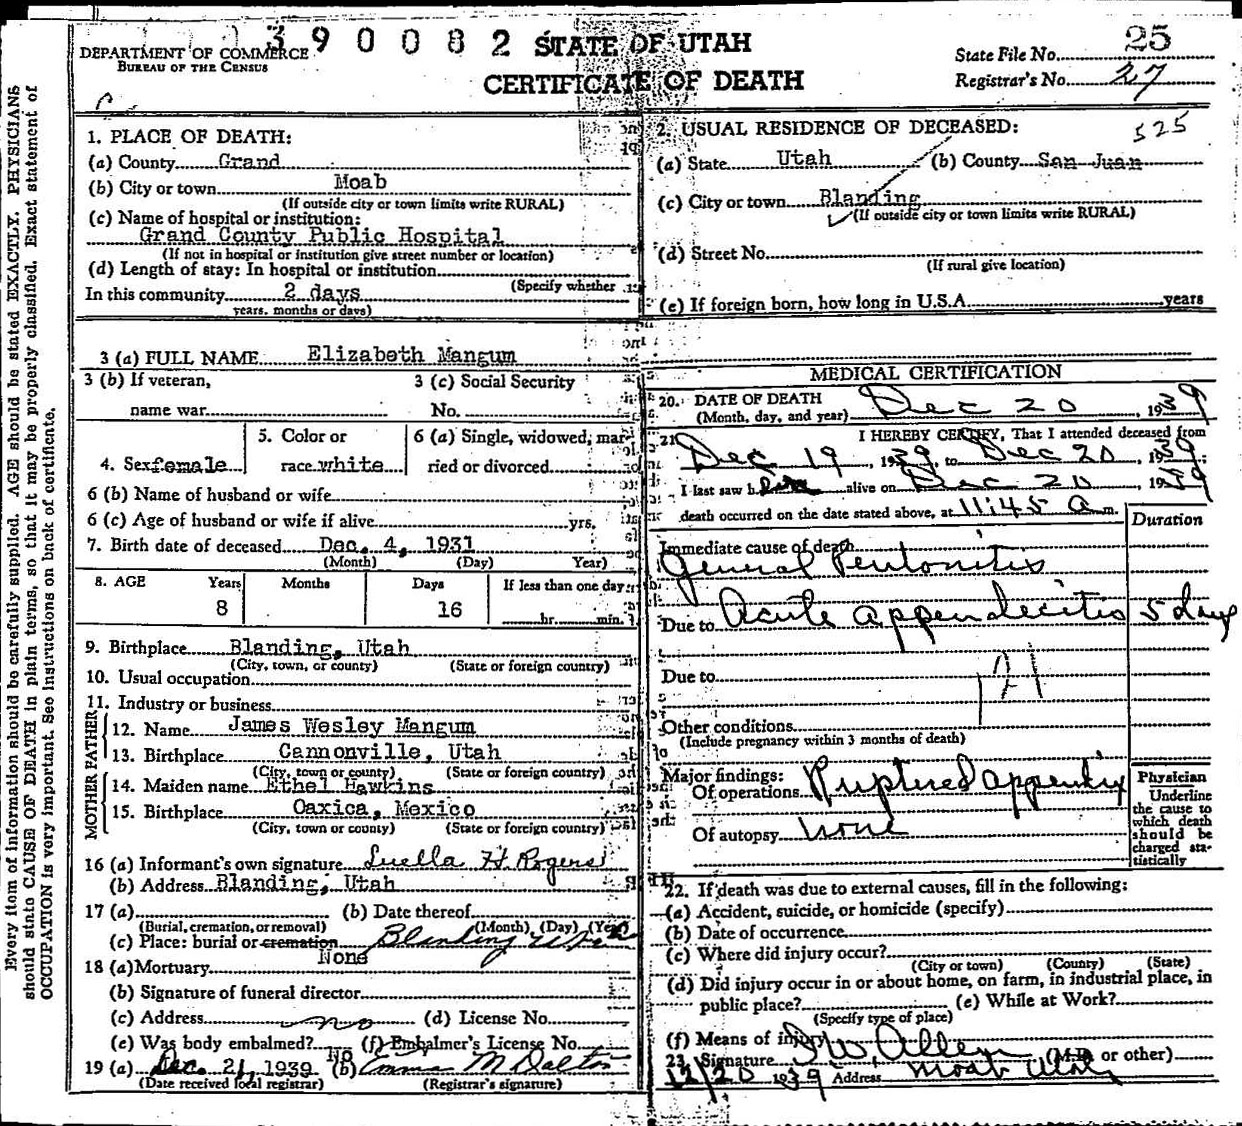 390082
DEPARTMENT OF COMMERCE
BUREAU OF THE CENSUS
STATE OF UTAH
CERTIFICATE OF DEATH
State File No. 25
Registrar's No. 27
Every item of information should be carefully supplied. AGE should be stated EXACTLY. PHYSICIANS
should state CAUSE OF DEATH in plain terms, so that it may be properly classified. Exact statement of
OCCUPATION is very important. See instructions on back of certificate.
1. PLACE OF DEATH:
(a) County Grand
(b) City or town Moab
(If outside city or town limits write RURAL)
(c) Name of hospital or institution:
Grand County Public Hospital
(If not in hospital or institution give street number or location)
(d) Length of stay: In hospital or institution
(Specify whether
In this community 2 days
years, months or days)
2. USUAL RESIDENCE OF DECEASED: 525
(a) State Utah (b) County San Juan
(c) City or town Blanding
(If outside city or town limits write RURAL)
(d) Street No.
(If rural give location)
(e) If foreign born, how long in U.S.A. years
3 (a) FULL NAME Elizabeth Mangum
3 (b) If veteran, 3 (c) Social Security
name war No.
4. Sex female 5. Color or race white 6 (a) Single, widowed, married or divorced
6 (b) Name of husband or wife
6 (c) Age of husband or wife if alive yrs.
7. Birth date of deceased Dec. 4, 1931
(Month) (Day) Year)
8. AGE Years Months Days If less than one day
8 16 hr. min.
9. Birthplace Blanding, Utah
(City, town, or county) (State or foreign country)
10. Usual occupation
11. Industry or business
FATHER
12. Name James Wesley Mangum
13. Birthplace Cannonville, Utah
(City, town or county) (State or foreign country)
MOTHER
14. Maiden name Ethel Hawkins
15. Birthplace Oaxica, Mexico
(City, town or county) (State or foreign country)
16 (a) Informant's own signature Luella H Rogers
(b) Address Blanding, Utah
17 (a) (b) Date thereof
(Burial, cremation, or removal) (Month) (Day) (Year)
(c) Place: burial or cremation Blanding Utah
18 (a) Mortuary None
(b) Signature of funeral director
(c) Address no (d) License No.
(e) Was body embalmed? No (f) Embalmer's License No.
19 (a) Dec. 21, 1939 (b) Emma M Dalton
(Date received local registrar) (Registrar's signature)
MEDICAL CERTIFICATION
20. DATE OF DEATH
(Month, day, and year) Dec 20, 1939
21. I HEREBY CERTIFY, That I attended deceased from
Dec 19, 1939, to Dec 20, 1939;
I last saw her alive on Dec 20, 1939
death occurred on the date stated above, at 11:45 a m.
Duration
Immediate cause of death
General Peritonitis
Due to Acute appendecitis 5 days
Due to
121
Other conditions
(Include pregnancy within 3 months of death)
Major findings:
Of operations Ruptured appendix
Of autopsy none
Physician
Underline
the cause to
which death
should be
charged sta-
tistically
22. If death was due to external causes, fill in the following:
(a) Accident, suicide, or homicide (specify)
(b) Date of occurrence
(c) Where did injury occur?
(City or town) (County) (State)
(d) Did injury occur in or about home, on farm, in industrial place, in
public place? (e) While at Work?
(Specify type of place)
(f) Means of injury
23. Signature Allen (M.D. or other)
12/20 1939 Address Moab Utah